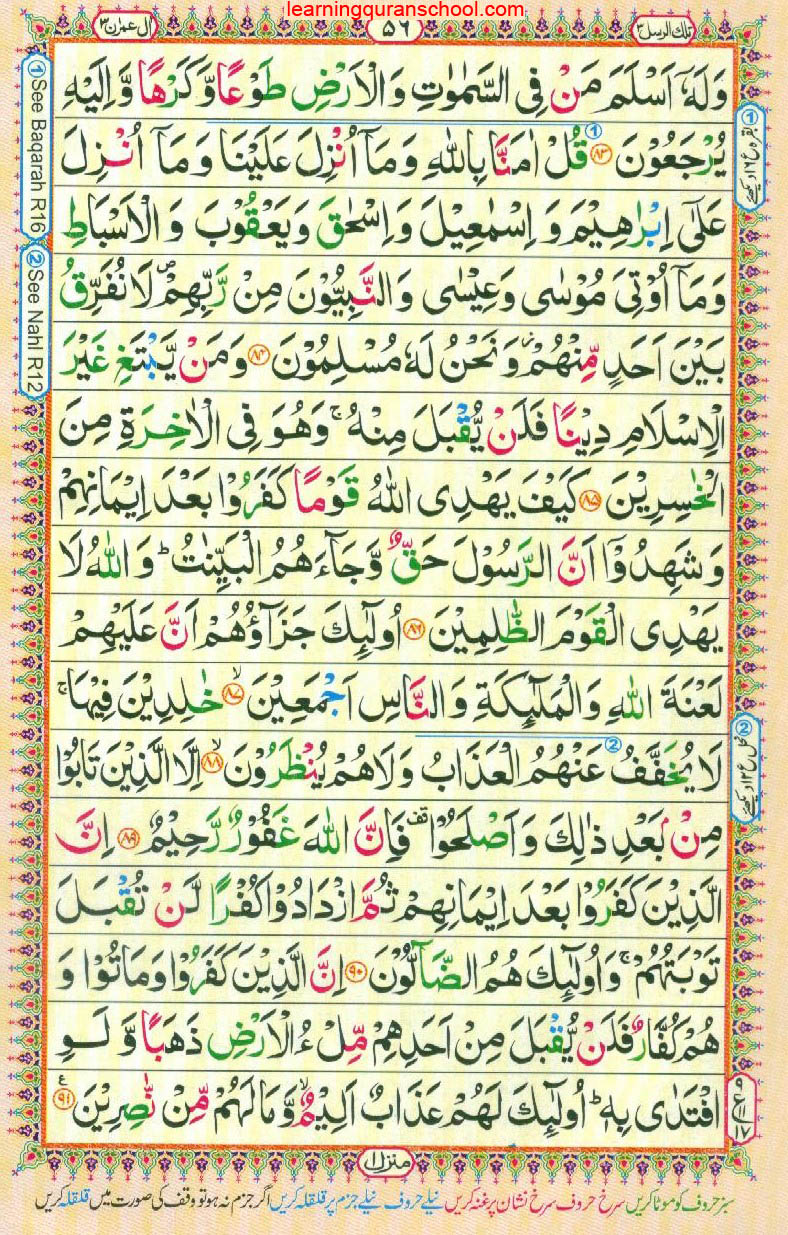 learningquranschool.com
تلك الرسل ٣
٥٦
اٰل عمرٰن ٣
وَلَهٗۤ اَسْلَمَ مَنْ فِی السَّمٰوٰتِ وَالْاَرْضِ طَوْعًا وَّكَرْهًا وَّاِلَیْهِ
یُرْجَعُوْنَ ﴿۸۳﴾ قُلْ اٰمَنَّا بِاللّٰهِ وَمَاۤ اُنْزِلَ عَلَیْنَا وَمَاۤ اُنْزِلَ
عَلٰۤی اِبْرٰهِیْمَ وَ اِسْمٰعِیْلَ وَاِسْحٰقَ وَیَعْقُوْبَ وَ الْاَسْبَاطِ
وَمَاۤ اُوْتِیَ مُوْسٰی وَعِیْسٰی وَالنَّبِیُّوْنَ مِنْ رَّبِّهِمْ۪ لَا نُفَرِّقُ
بَیْنَ اَحَدٍ مِّنْهُمْ ؗ وَنَحْنُ لَهٗ مُسْلِمُوْنَ ﴿۸۴﴾ وَمَنْ یَّبْتَغِ غَیْرَ
الْاِسْلَامِ دِیْنًا فَلَنْ یُّقْبَلَ مِنْهُ ۚ وَهُوَ فِی الْاٰخِرَةِ مِنَ
الْخٰسِرِیْنَ ﴿۸۵﴾ كَیْفَ یَهْدِی اللّٰهُ قَوْمًا كَفَرُوْا بَعْدَ اِیْمَانِهِمْ
وَ شَهِدُوْۤا اَنَّ الرَّسُوْلَ حَقٌّ وَّجَآءَهُمُ الْبَیِّنٰتُ ؕ وَ اللّٰهُ لَا
یَهْدِی الْقَوْمَ الظّٰلِمِیْنَ ﴿۸۶﴾ اُولٰٓىِٕكَ جَزَآؤُهُمْ اَنَّ عَلَیْهِمْ
لَعْنَةَ اللّٰهِ وَالْمَلٰٓىِٕكَةِ وَ النَّاسِ اَجْمَعِیْنَ ۙ﴿۸۷﴾ خٰلِدِیْنَ فِیْهَا ۚ
لَا یُخَفَّفُ عَنْهُمُ الْعَذَابُ وَلَا هُمْ یُنْظَرُوْنَ ۙ﴿۸۸﴾ اِلَّا الَّذِیْنَ تَابُوْا
مِنْۢ بَعْدِ ذٰلِكَ وَ اَصْلَحُوْا ۫ فَاِنَّ اللّٰهَ غَفُوْرٌ رَّحِیْمٌ ﴿۸۹﴾ اِنَّ
الَّذِیْنَ كَفَرُوْا بَعْدَ اِیْمَانِهِمْ ثُمَّ ازْدَادُوْا كُفْرًا لَّنْ تُقْبَلَ
تَوْبَتُهُمْ ۚ وَاُولٰٓىِٕكَ هُمُ الضَّآلُّوْنَ ﴿۹۰﴾ اِنَّ الَّذِیْنَ كَفَرُوْا وَمَاتُوْا وَ
هُمْ كُفَّارٌ فَلَنْ یُّقْبَلَ مِنْ اَحَدِهِمْ مِّلْءُ الْاَرْضِ ذَهَبًا وَّ لَوِ
افْتَدٰی بِهٖ ؕ اُولٰٓىِٕكَ لَهُمْ عَذَابٌ اَلِیْمٌ ۙ وَّمَا لَهُمْ مِّنْ نّٰصِرِیْنَ ﴿۹۱﴾ ع
① See Baqarah R16
② See Nahl R12
① بقرہ ع ۱۶ دیکھئے
② نحل ع ۱۲ دیکھئے
۹
ع ۱۱
۱۷
منزل ۱
سبز حروف کو موٹا کریں سرخ حروف سرخ نشان پر غنہ کریں نیلے حروف نیلے جزم پر قلقلہ کریں اگر جزم نہ ہو تو وقف کی صورت میں قلقلہ کریں